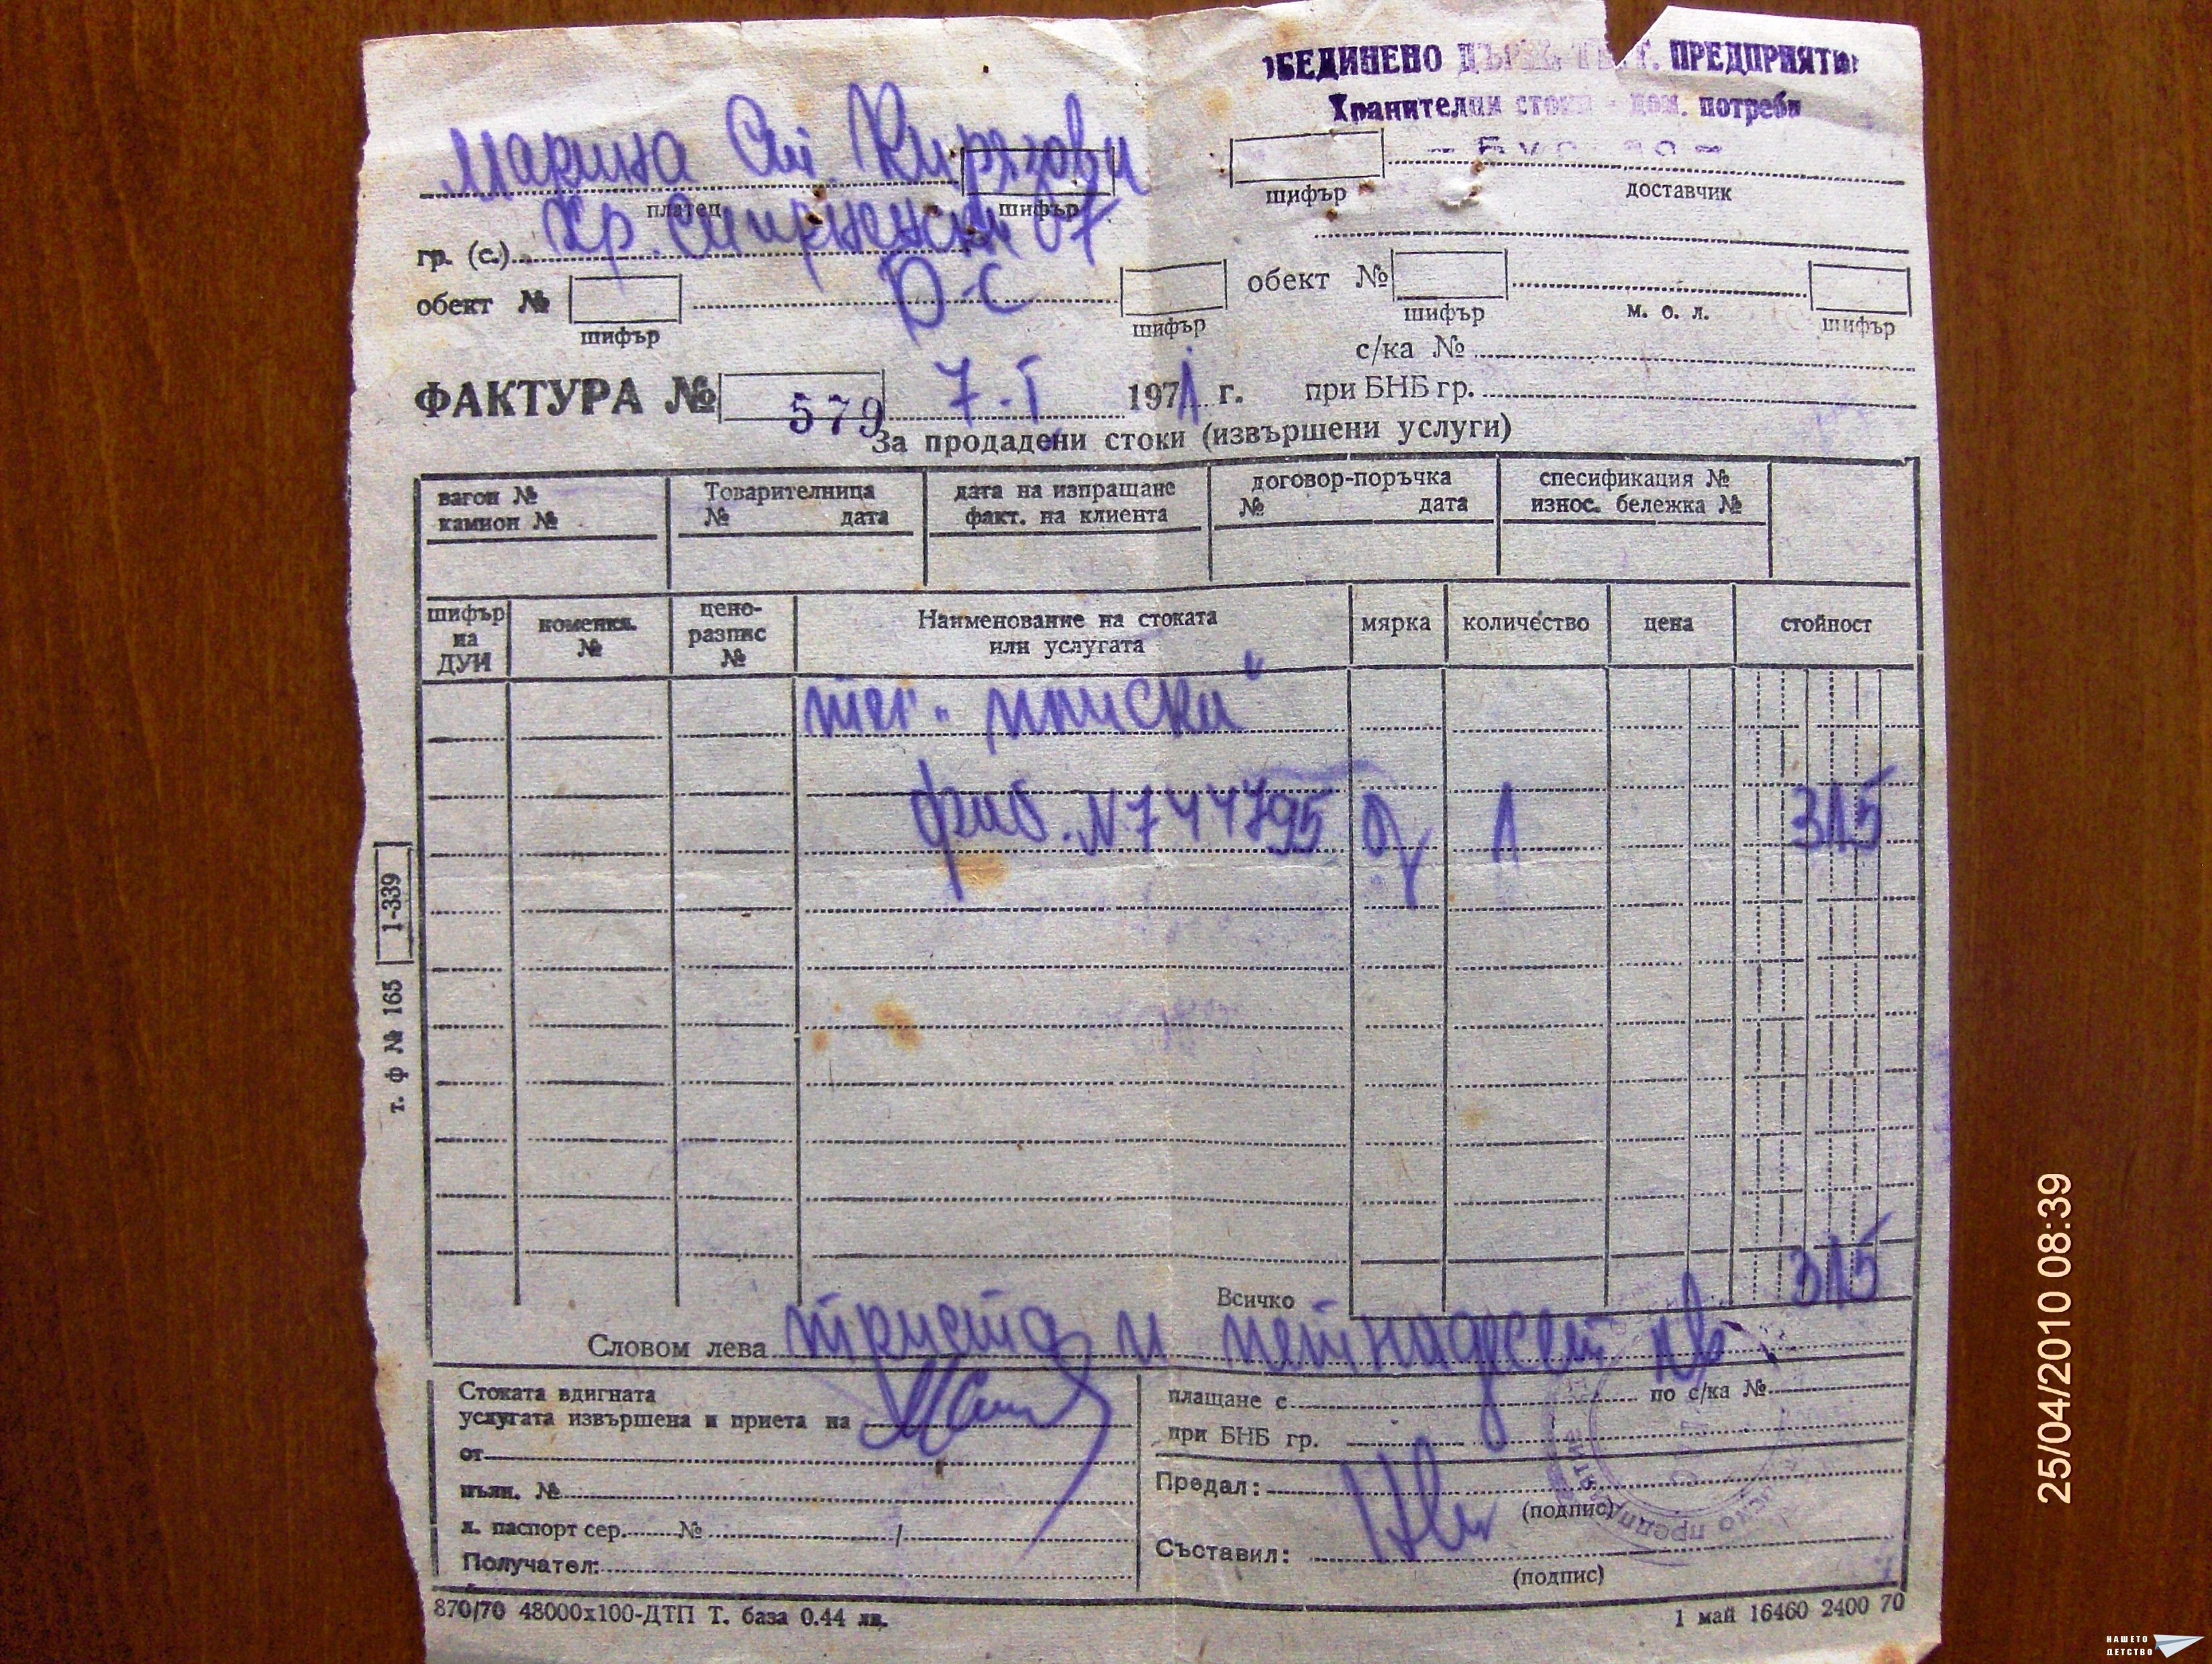 ОБЕДИНЕНО ДЪРЖ. ТЪРГ. ПРЕДПРИЯТИЕ
Хранителни стоки - дом. потреби
- Бургас -
Марина Ст. Кирязова
платец шифър
шифър доставчик
гр. (с.) Хр. Смирненски 67
обект № шифър Б-С шифър
обект № шифър м. о. л. шифър
с/ка №
ФАКТУРА № 579 7-I 1971 г. при БНБ гр.
За продадени стоки (извършени услуги)
вагон № камион №
Товарителница № дата
дата на изпращане факт. на клиента
договор-поръчка № дата
спесификация № износ. бележка №
шифър на ДУИ
номенкл. №
цено-разпис №
Наименование на стоката или услугата
мярка
количество
цена
стойност
фаб. N 744795 бр 1 315
Всичко 315
Словом лева триста и петнадесет лв
Стоката вдигната
услугата извършена и приета на
от
пълн. №
л. паспорт сер. № /
Получател:
плащане с по с/ка №
при БНБ гр.
Предал:
(подпис)
Съставил:
(подпис)
870/70 48000х100-ДТП Т. база 0.44 лв.
1 май 16460 2400 70
т. ф № 165 1-339
25/04/2010 08:39
НАШЕТО
ДЕТСТВО